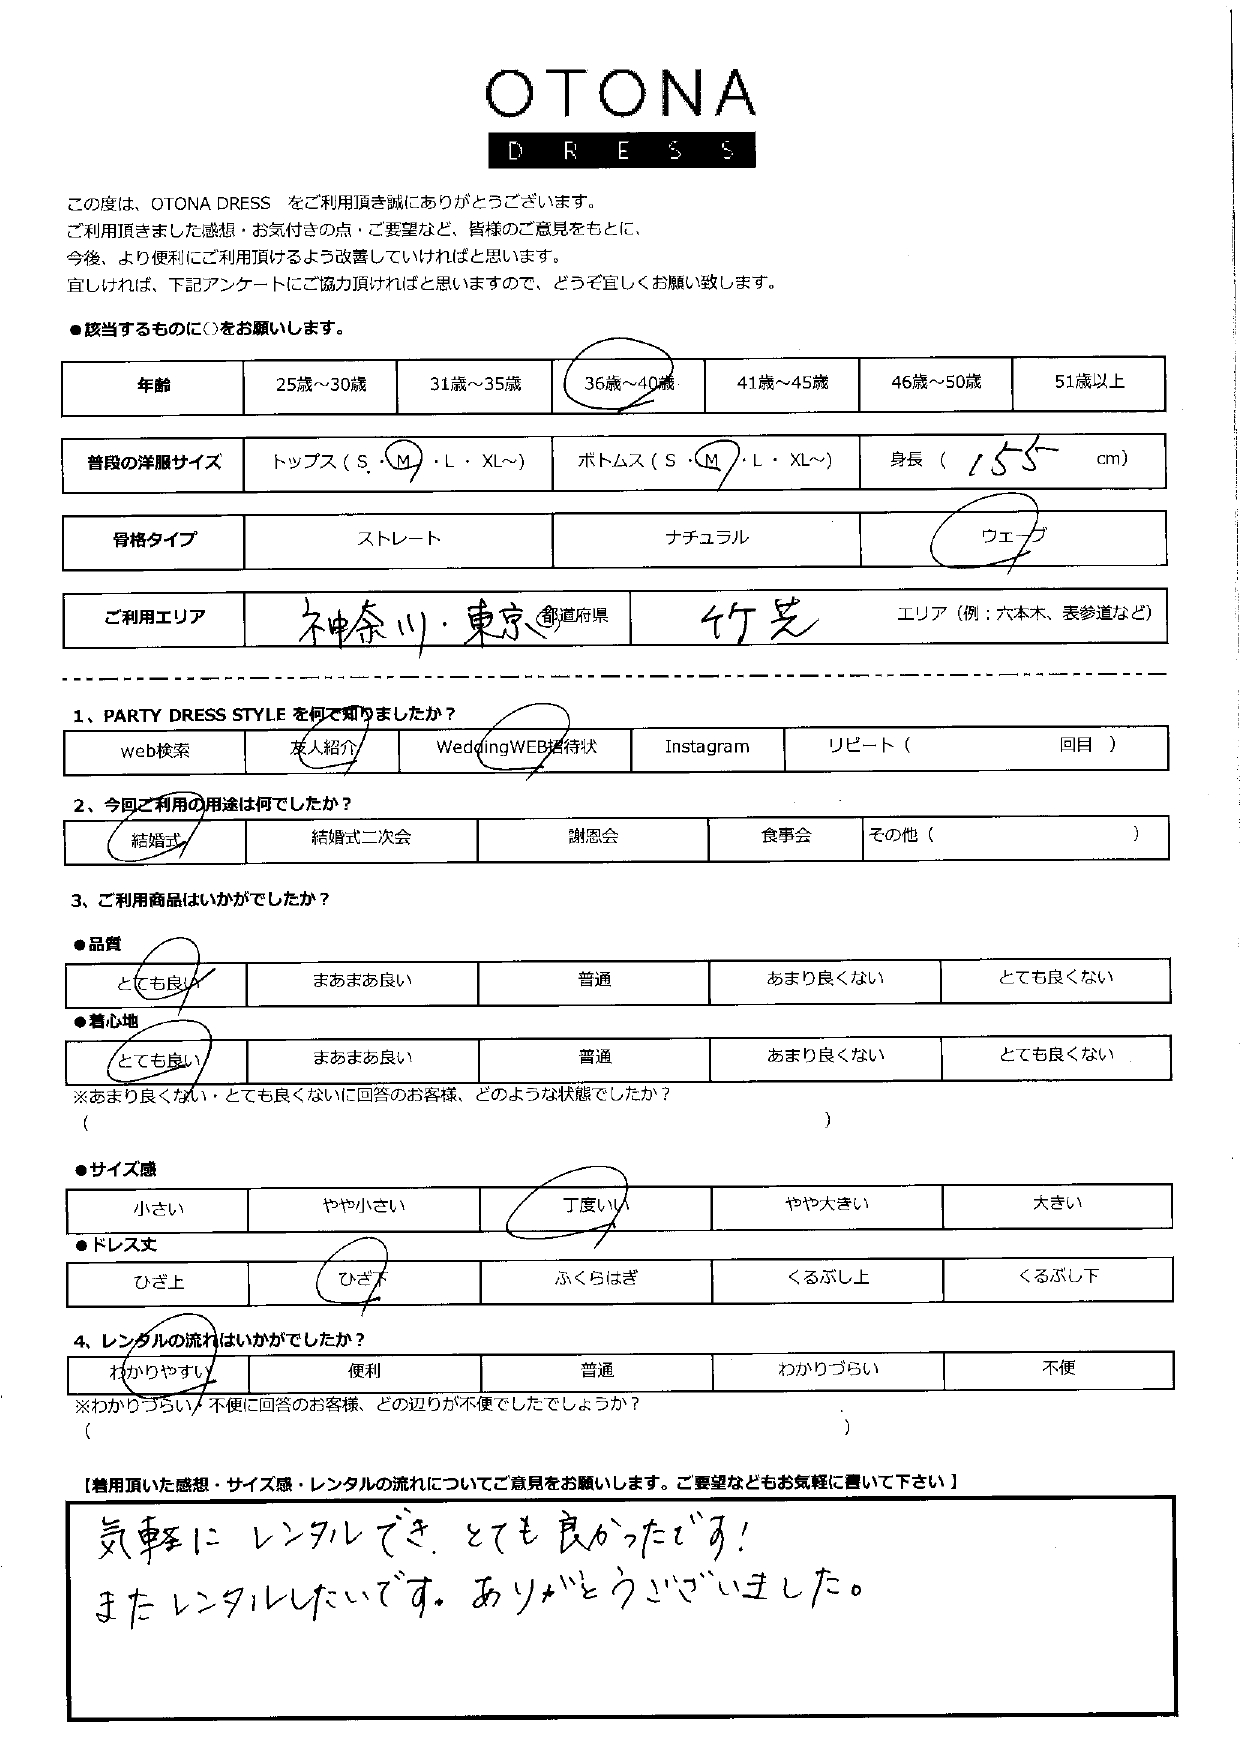 OTONA
DRESS
この度は、OTONA DRESS をご利用頂き誠にありがとうございます。
ご利用頂きました感想・お気付きの点・ご要望など、皆様のご意見をもとに、
今後、より便利にご利用頂けるよう改善していければと思います。
宜しければ、下記アンケートにご協力頂ければと思いますので、どうぞ宜しくお願い致します。
●該当するものに○をお願いします。
年齢 25歳～30歳 31歳～35歳 36歳～40歳 41歳～45歳 46歳～50歳 51歳以上
普段の洋服サイズ トップス（ S ・ M ・ L ・ XL～） ボトムス（ S ・ M ・ L ・ XL～） 身長 （ 155 cm）
骨格タイプ ストレート ナチュラル ウェーブ
ご利用エリア 神奈川・東京 都道府県 竹芝 エリア（例：六本木、表参道など）
1、PARTY DRESS STYLE を何で知りましたか？
web検索 友人紹介 WeddingWEB招待状 Instagram リピート（ 回目 ）
2、今回ご利用の用途は何でしたか？
結婚式 結婚式二次会 謝恩会 食事会 その他（ ）
3、ご利用商品はいかがでしたか？
●品質
とても良い まあまあ良い 普通 あまり良くない とても良くない
●着心地
とても良い まあまあ良い 普通 あまり良くない とても良くない
※あまり良くない・とても良くないに回答のお客様、どのような状態でしたか？
（ ）
●サイズ感
小さい やや小さい 丁度いい やや大きい 大きい
●ドレス丈
ひざ上 ひざ下 ふくらはぎ くるぶし上 くるぶし下
4、レンタルの流れはいかがでしたか？
わかりやすい 便利 普通 わかりづらい 不便
※わかりづらい・不便に回答のお客様、どの辺りが不便でしたでしょうか？
（ ）
【着用頂いた感想・サイズ感・レンタルの流れについてご意見をお願いします。ご要望などもお気軽に書いて下さい 】
気軽に レンタルでき、とても良かったです！
またレンタルしたいです。ありがとうございました。